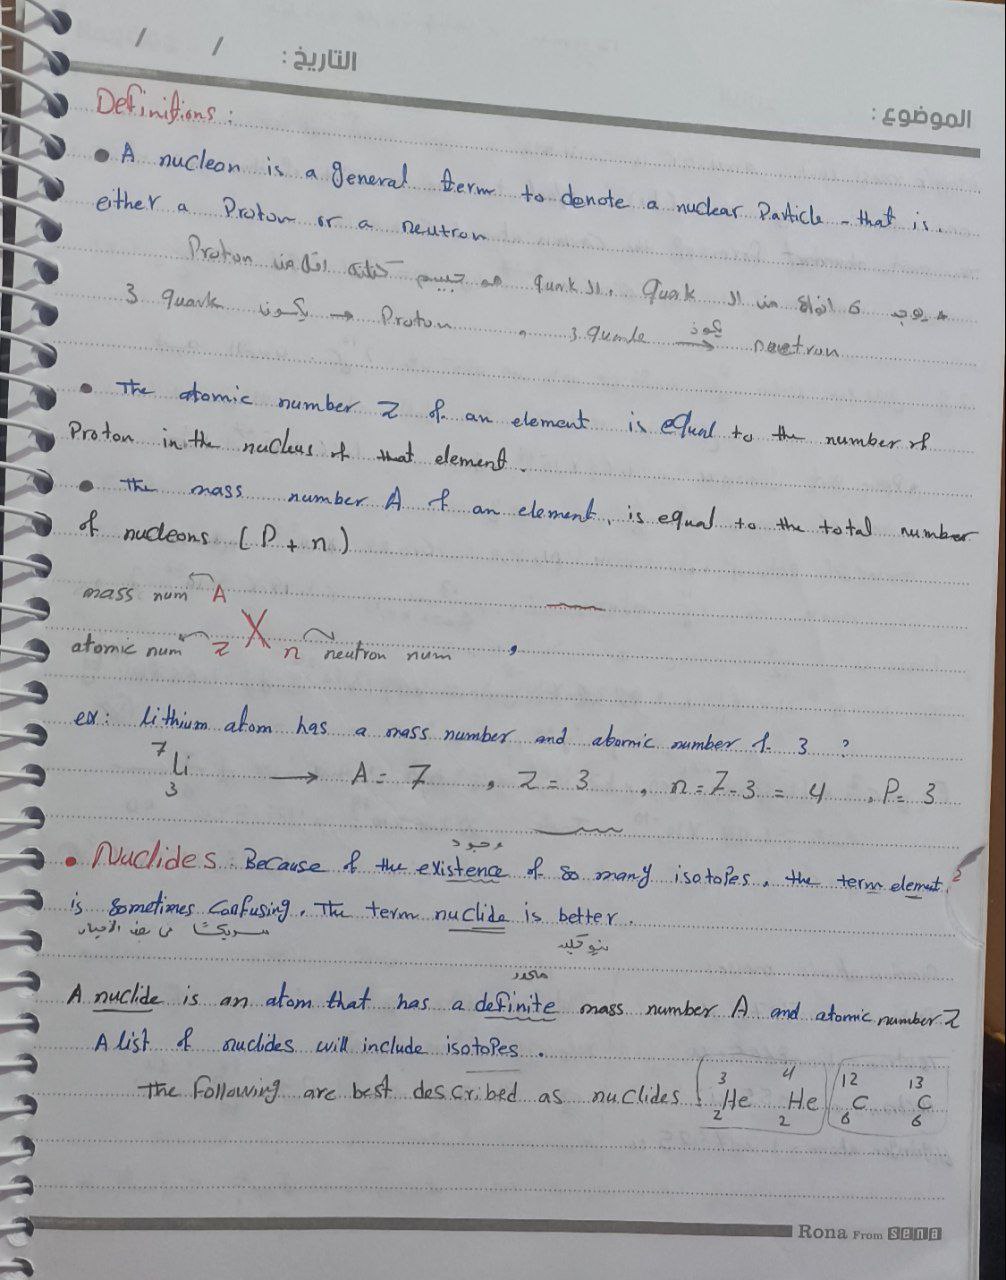 التاريخ: / /
الموضوع:
Definitions:
• A nucleon is a general term to denote a nuclear Particle - that is.
either a Proton or a neutron
* يوجد 6 انواع من الـ Quark ,الـ quark هو جسيم كتلته اقل من Proton
3 quark يكون → Proton , 3 quarke يكون → neutron
• The atomic number Z of an element is equal to the number of
Proton in the nucleus of that element.
• The mass number A of an element, is equal to the total number
of nucleons (P + n)
mass num A
X
atomic num Z n neutron num
ex: lithium atom has a mass number and atomic number of 3 ?
7
Li → A = 7 , Z = 3 , n = 7-3 = 4 , P = 3
3
وجود
• Nuclides: Because of the existence of so many isotopes, the term element
is sometimes Confusing. The term nuclide is better.
نيوكليد
محدد
A nuclide is an atom that has a definite mass number A and atomic number Z
A list of nuclides will include isotopes.
3 4 12 13
The Following are best described as nuclides He He C C
2 2 6 6
Rona From sena